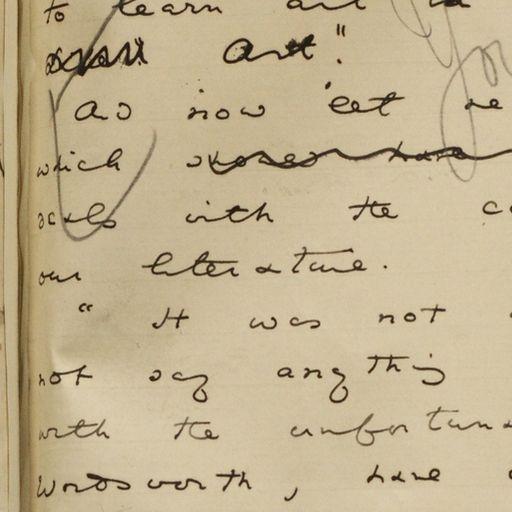 to learn all
Art."
And now let me
which should have
deals with the
our literature.
" It was not
not say anything
with the unfortuna
Wordsworth, have